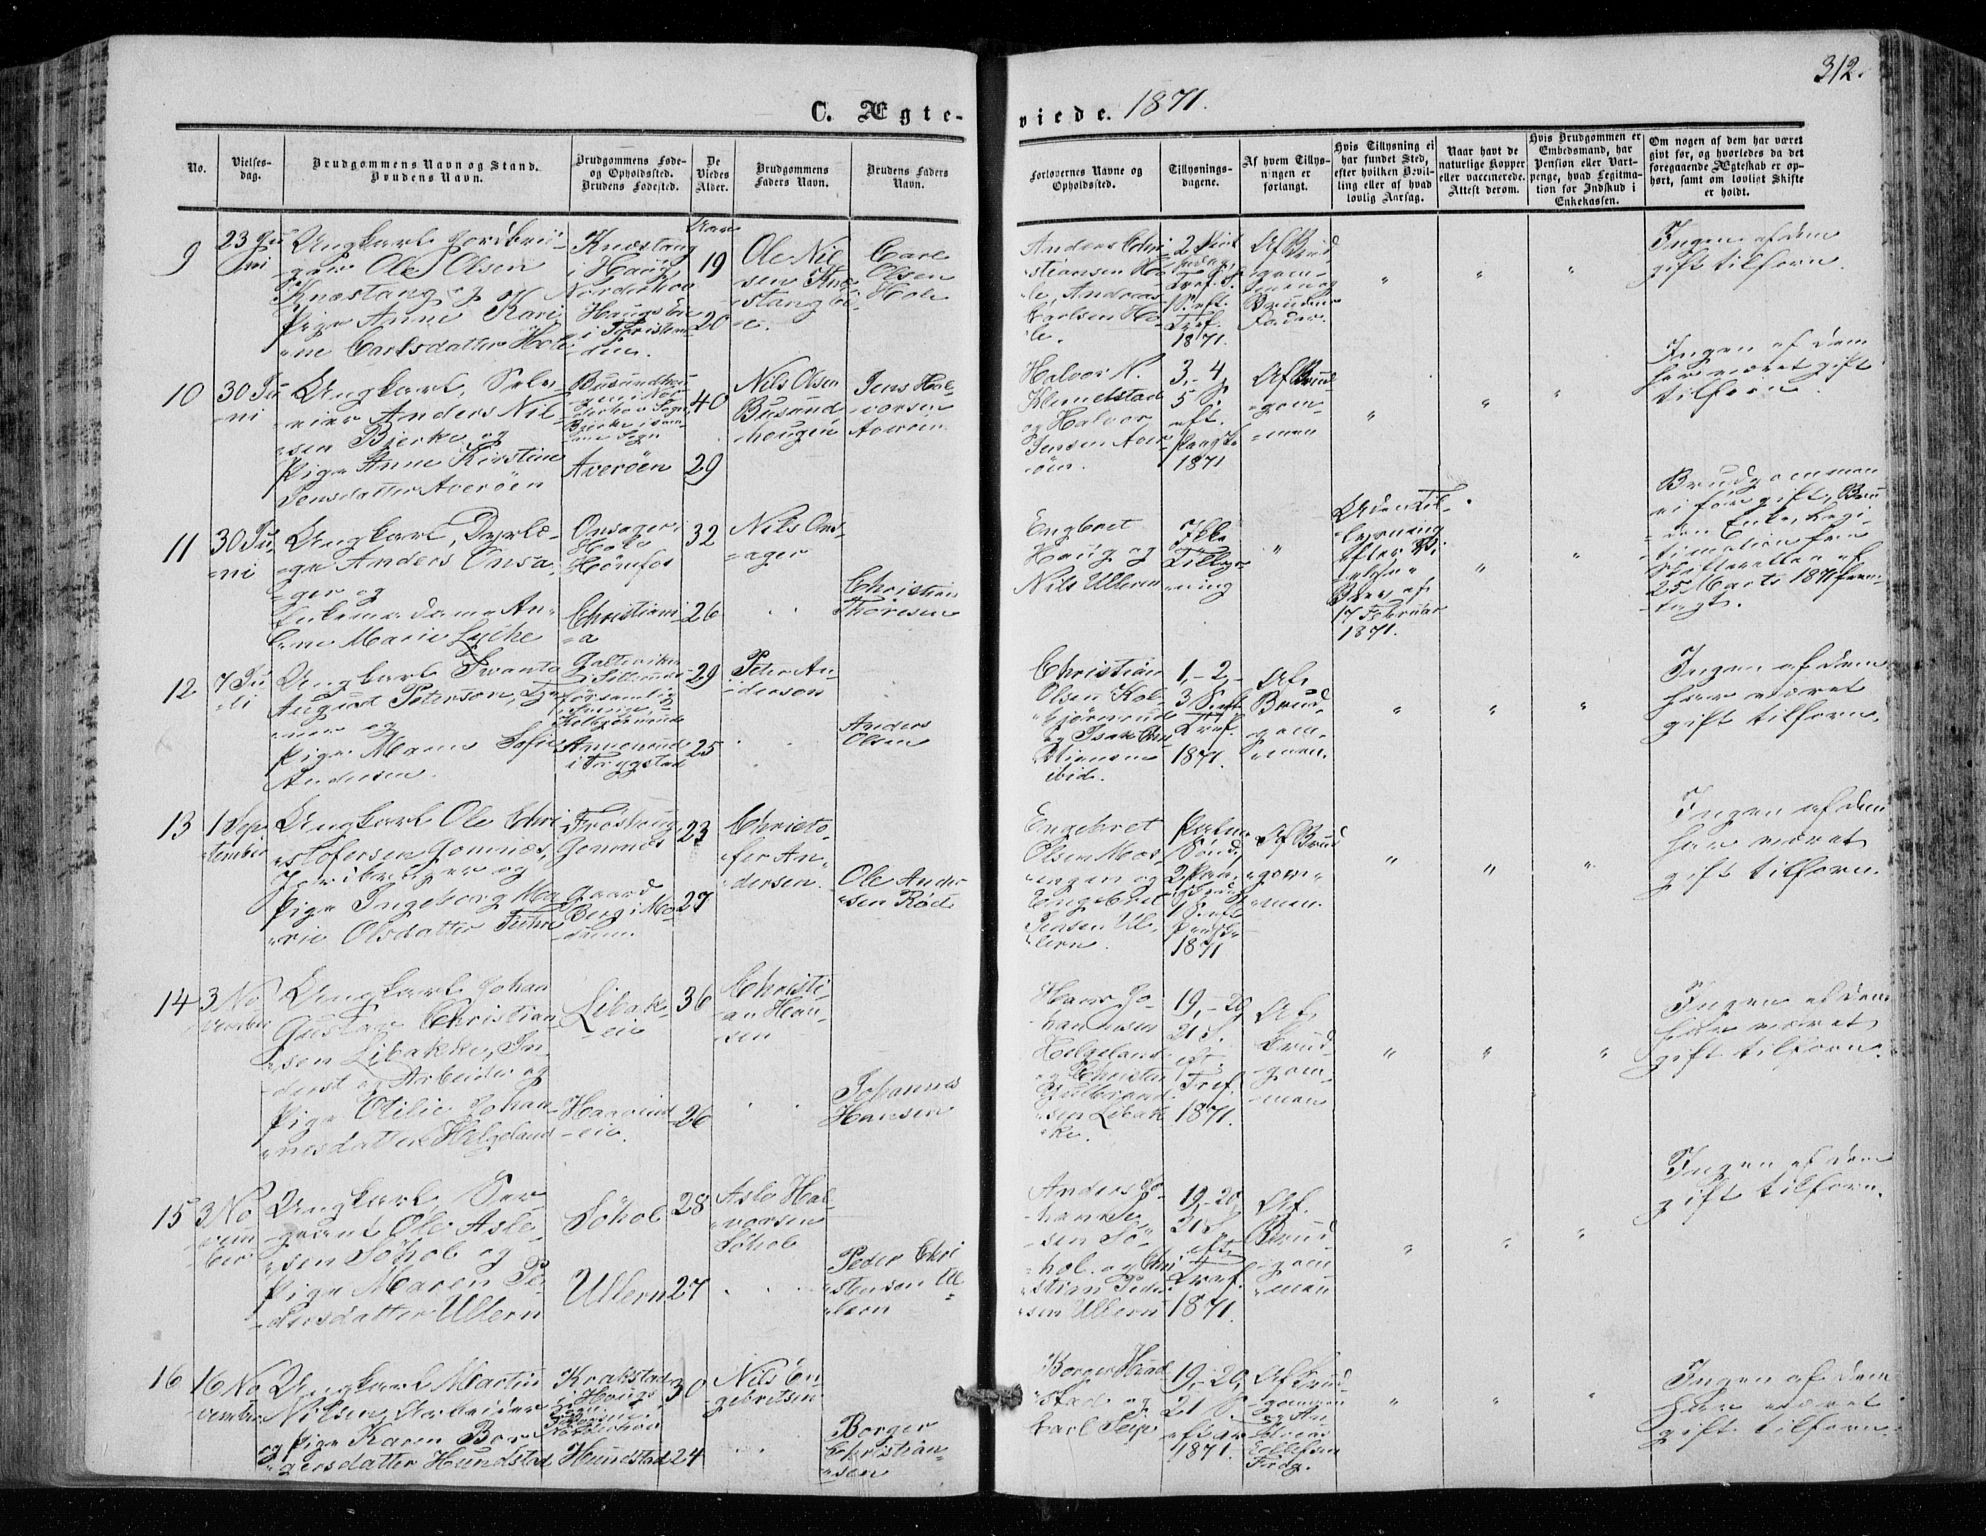 312.
C. Ægte-
viede. 1871.
No.
Vielses-
dag.
Brudgommens Navn og Stand.
Brudens Navn.
Brudgommens Føde-
og Opholdssted.
Brudens Fødested.
De
Viedes
Alder.
Brudgommens
Faders Navn.
Brudens Faders
Navn.
Forlovernes Navne og
Opholdssted.
Tillysnings-
dagene.
Af hvem Tillys-
ningen er
forlangt.
Hvis Tillysning ei
har fundet Sted,
efter hvilken Bevil-
ling eller af hvad
lovlig Aarsag.
Naar havt de
naturlige Kopper
eller vaccinerede.
Attest derom.
Hvis Brudgommen er
Embedsmand, har
Pension eller Vart-
penge, hvad Legitima-
tion for Indskud i
Enkekassen.
Om nogen af dem har været
gift før, og hvorledes da det
foregaaende Ægteskab er op-
hørt, samt om lovligt Skifte
er holdt.
9
23 Ju
ni
Ungkarl, Jordbru-
ger Ole Olsen
Knæstang og
Pige Anne Kari-
ne Carlsdatter Hole
Knæstang
i Haug,
Norderhov
Aar
19
20
Ole Nil-
sen Knæ-
stang
Carl
Olsen
Hole
Anders Chri
stiansen Ho
le, Andreas
Carlsen Ho
le.
1871.
Af Brud
gom-
men og
Brudens
Fader.
Ingen af dem
gift tilforn.
10
30 Ju
ni
Ungkarl, Selv-
eier Anders Nil-
sen Bjerke og
Pige Anne Kirstine
Jensdatter Averøen
Averøen
40
29
Nils Olsen
Busund
hougen
Jens Hal-
vorsen
Averøen
Halvor N.
Klemetstad
og Halvor
Jensen Aver
øen.
3, - 4,
5 S.
eft.
Paaske
1871
Af Brud
gom-
men
Ingen af dem
har været gift
tilforn
11
30 Ju-
ni
Ungkarl, Dyrlæ-
ge Anders Onsa
ger og
Enkemadame An-
ne Marie Lyche
Onsager i
Hole
Hønefos
Christiani
a
32
26
Nils Ons-
ager
Christian
Thoresen
Engebret
Haug og
Nils Ullern
Ikke
Tillys
ning
Uden Til-
lysning
efter
17 Februar
1871.
Brudgommen
ei før gift, Bru
den Enke, Legi-
timation fra
Skifteretten af
25 Marts 1871 frem-
lagt.
12
7 Ju
li
Ungkarl Svante
August Peterson,
og
Pige Maren Sofie
Andersen.
i Tryggstad
29
25
Peter An-
derson
Anders
Olsen
Christian
Olsen Kol-
bjørnrud
og Isak Chri
stiansen
ibid.
1, - 2, -
3 S. eft
Tref.
1871.
Af
Brud-
gom-
men.
Ingen af dem
har været
gift tilforn.
13
1 Sep-
tember
Ungkarl Ole Chri
stofersen Gomnæs,
Jordbruger og
Pige Ingeborg Ma-
rie Olsdatter
Gomnæs
23
27
Christo-
fer An-
dersen.
Ole Ander
sen Rød
Engebret
Olsen Moe
engen og
Engebret
Jensen Ul-
lern.
1871
Af Brud
gom-
men.
Ingen af dem
har været
gift tilforn.
14
3 No
vember
Ungkarl Johan
Gustav Christian
sen Libakke, In-
derst og Arbeider og
Pige Otilie Johan
nesdatter Helgeland
Libak-
eie
eie.
36
26
Christi-
an Han-
sen
Johannes
Hansen
Hans Jo-
hannesen
Helgeland
og Christen
Gulbrand
sen Libak
ke.
19, - 20,
21 S.
eft
Tref.
1871.
Af
Brud-
gom-
men
Ingen af dem
har været
gift tilforn.
15
3 No
vem
ber
Ungkarl, Ser-
geant Ole Asle-
sen Søhol og
Pige Maren Pe-
dersdatter Ullern
Søhol
Ullern
28
27
Asle Hal-
vorsen
Søhol
Peder Chri
stensen Ul-
lern
Anders Jo-
hanne-
sen Sø-
hol og Chri
stian Peder
sen Ullern
19, - 20,
21 S.
eft.
Tref.
1871.
Af
Brud-
gom-
men
Ingen af dem
gift tilforn.
16
16 No
vember
Ungkarl Martin
Nilsen, Arbeider
og Pige Karen Bor
gersdatter Hundstad
Krakstad
i Hougs
Sogn
Hundstad
30
24
Nils En-
gebretsen
Borger
Christian-
sen
Borger Hund
stad og
Carl Seip
19, - 20,
21 S.
1871.
Af Brud-
gommen
Ingen af dem
har været
gift tilforn.